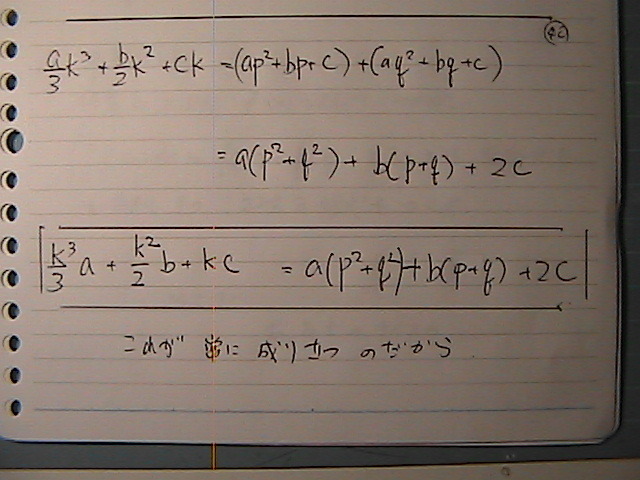 a/3 k³ + b/2 k² + ck = (ap² + bp + c) + (aq² + bq + c)
= a(p² + q²) + b(p+q) + 2c
k³/3 a + k²/2 b + kc = a(p² + q²) + b(p+q) + 2c
これが 常に 成り立つ のだから